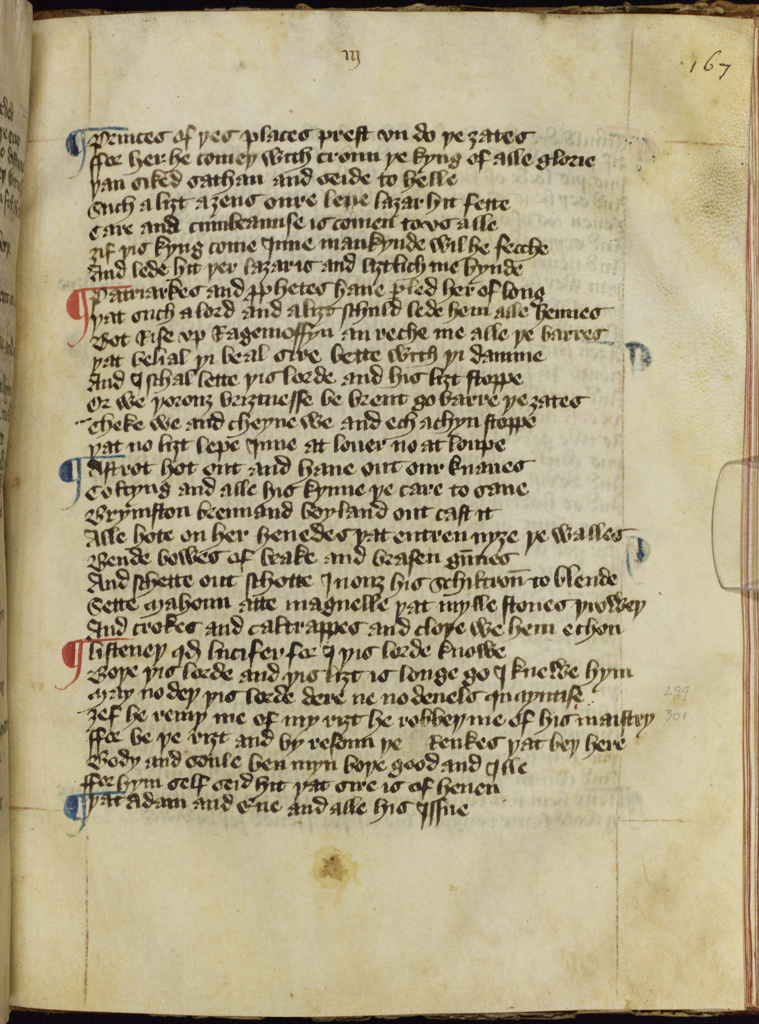 iij
167
¶ Princes of þes places prest vn do þe ȝates
ffor her he comeþ with croun þe kyng of alle glorie
þan siked sathan and seide to helle
Such a liȝt aȝens oure leue lazar hit fette
Care and cumberaunse is comen to vs alle
ȝif þis kyng come Inne mankynde wil he fecche
And lede hit þer lazar is and liȝtlich me bynde
¶ Patriarkes and prophetes haue pled her of long
þat such a lord and a liȝt schuld lede hem alle hennes
Bot Rise vp Ragemoffyn an reche me alle þe barres
þat belial þi beal sire bette with þi damme
And I schal lette þis lorde and his liȝt stoppe
Or we þorouȝ briȝtnesse be brent go barre þe ȝates
Cheke we and cheyne we and ech a chyn stoppe
þat no liȝt lepe Inne at louer no at loupe
¶ Astrot hot out and haue out our knaues
Coltyng and alle his kynne þe care to saue
Brymston brennand boyland out cast it
Alle hote on her heuedes þat entren nyȝe þe walles
Bende bowes of brake and brasen gunnes
And schette out schotte I nouȝ his schiltron to blende
Sette mahoun atte magnelle þat mylle stones þroweþ
And crokes and caltrappes and cloþe we hem echon
¶ listeneþ qd lucifer for I þis lorde knowe
Boþe þis lorde and þis liȝt is longe go I knewe hym
May no deþ þis lorde dere ne no deuels quayntise
ȝef he reuyþ me of my riȝt he robbeþ me of his maistry
ffor be þe riȝt and by resoun þe Renkes þat beþ here
Body and soule ben myn boþe good and Ille
ffor hym self seid hit þat sire is of heuen
¶ þat adam and eue and alle his Issue
299
301